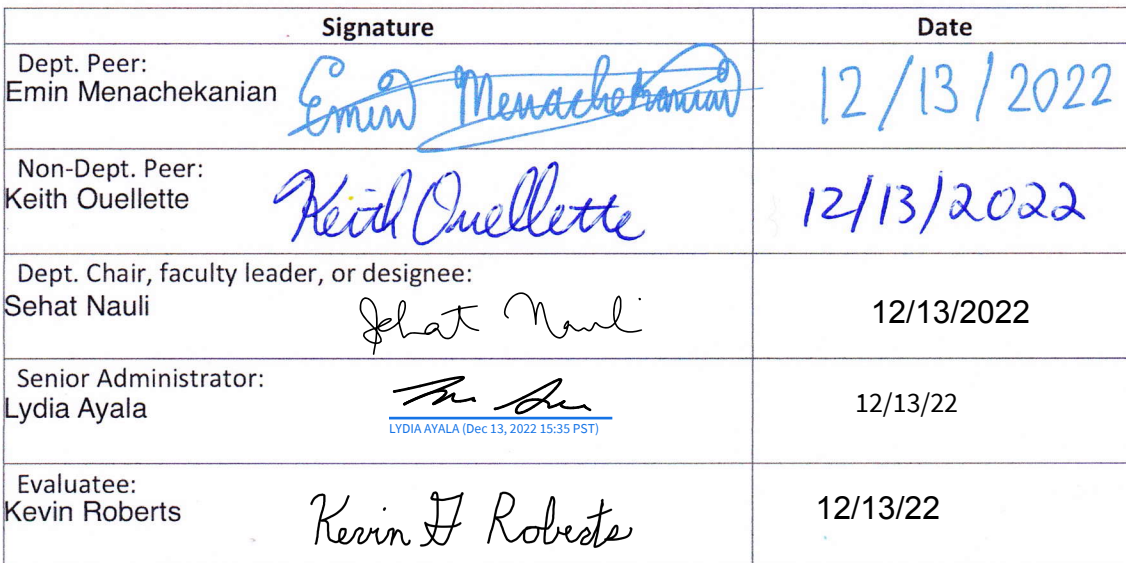 Signature Date
Dept. Peer:
Emin Menachekanian Emin Menachekanian 12/13/2022
Non-Dept. Peer:
Keith Ouellette Keith Ouellette 12/13/2022
Dept. Chair, faculty leader, or designee:
Sehat Nauli Sehat Nauli 12/13/2022
Senior Administrator:
Lydia Ayala 12/13/22
LYDIA AYALA (Dec 13, 2022 15:35 PST)
Evaluatee:
Kevin Roberts Kevin G Roberts 12/13/22